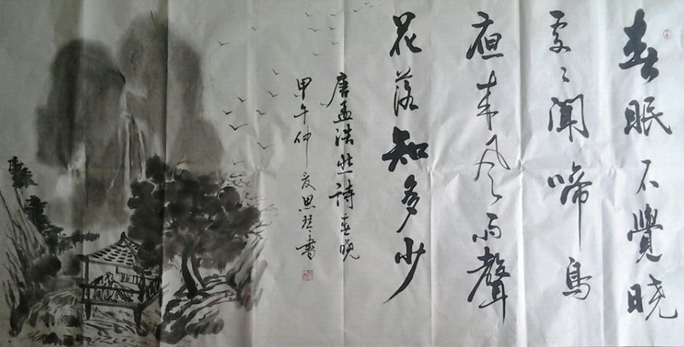 春眠不覺晓
處々聞啼鳥
夜来风雨聲
花落知多少
唐孟浩然詩春晓
甲午仲夏思琴書